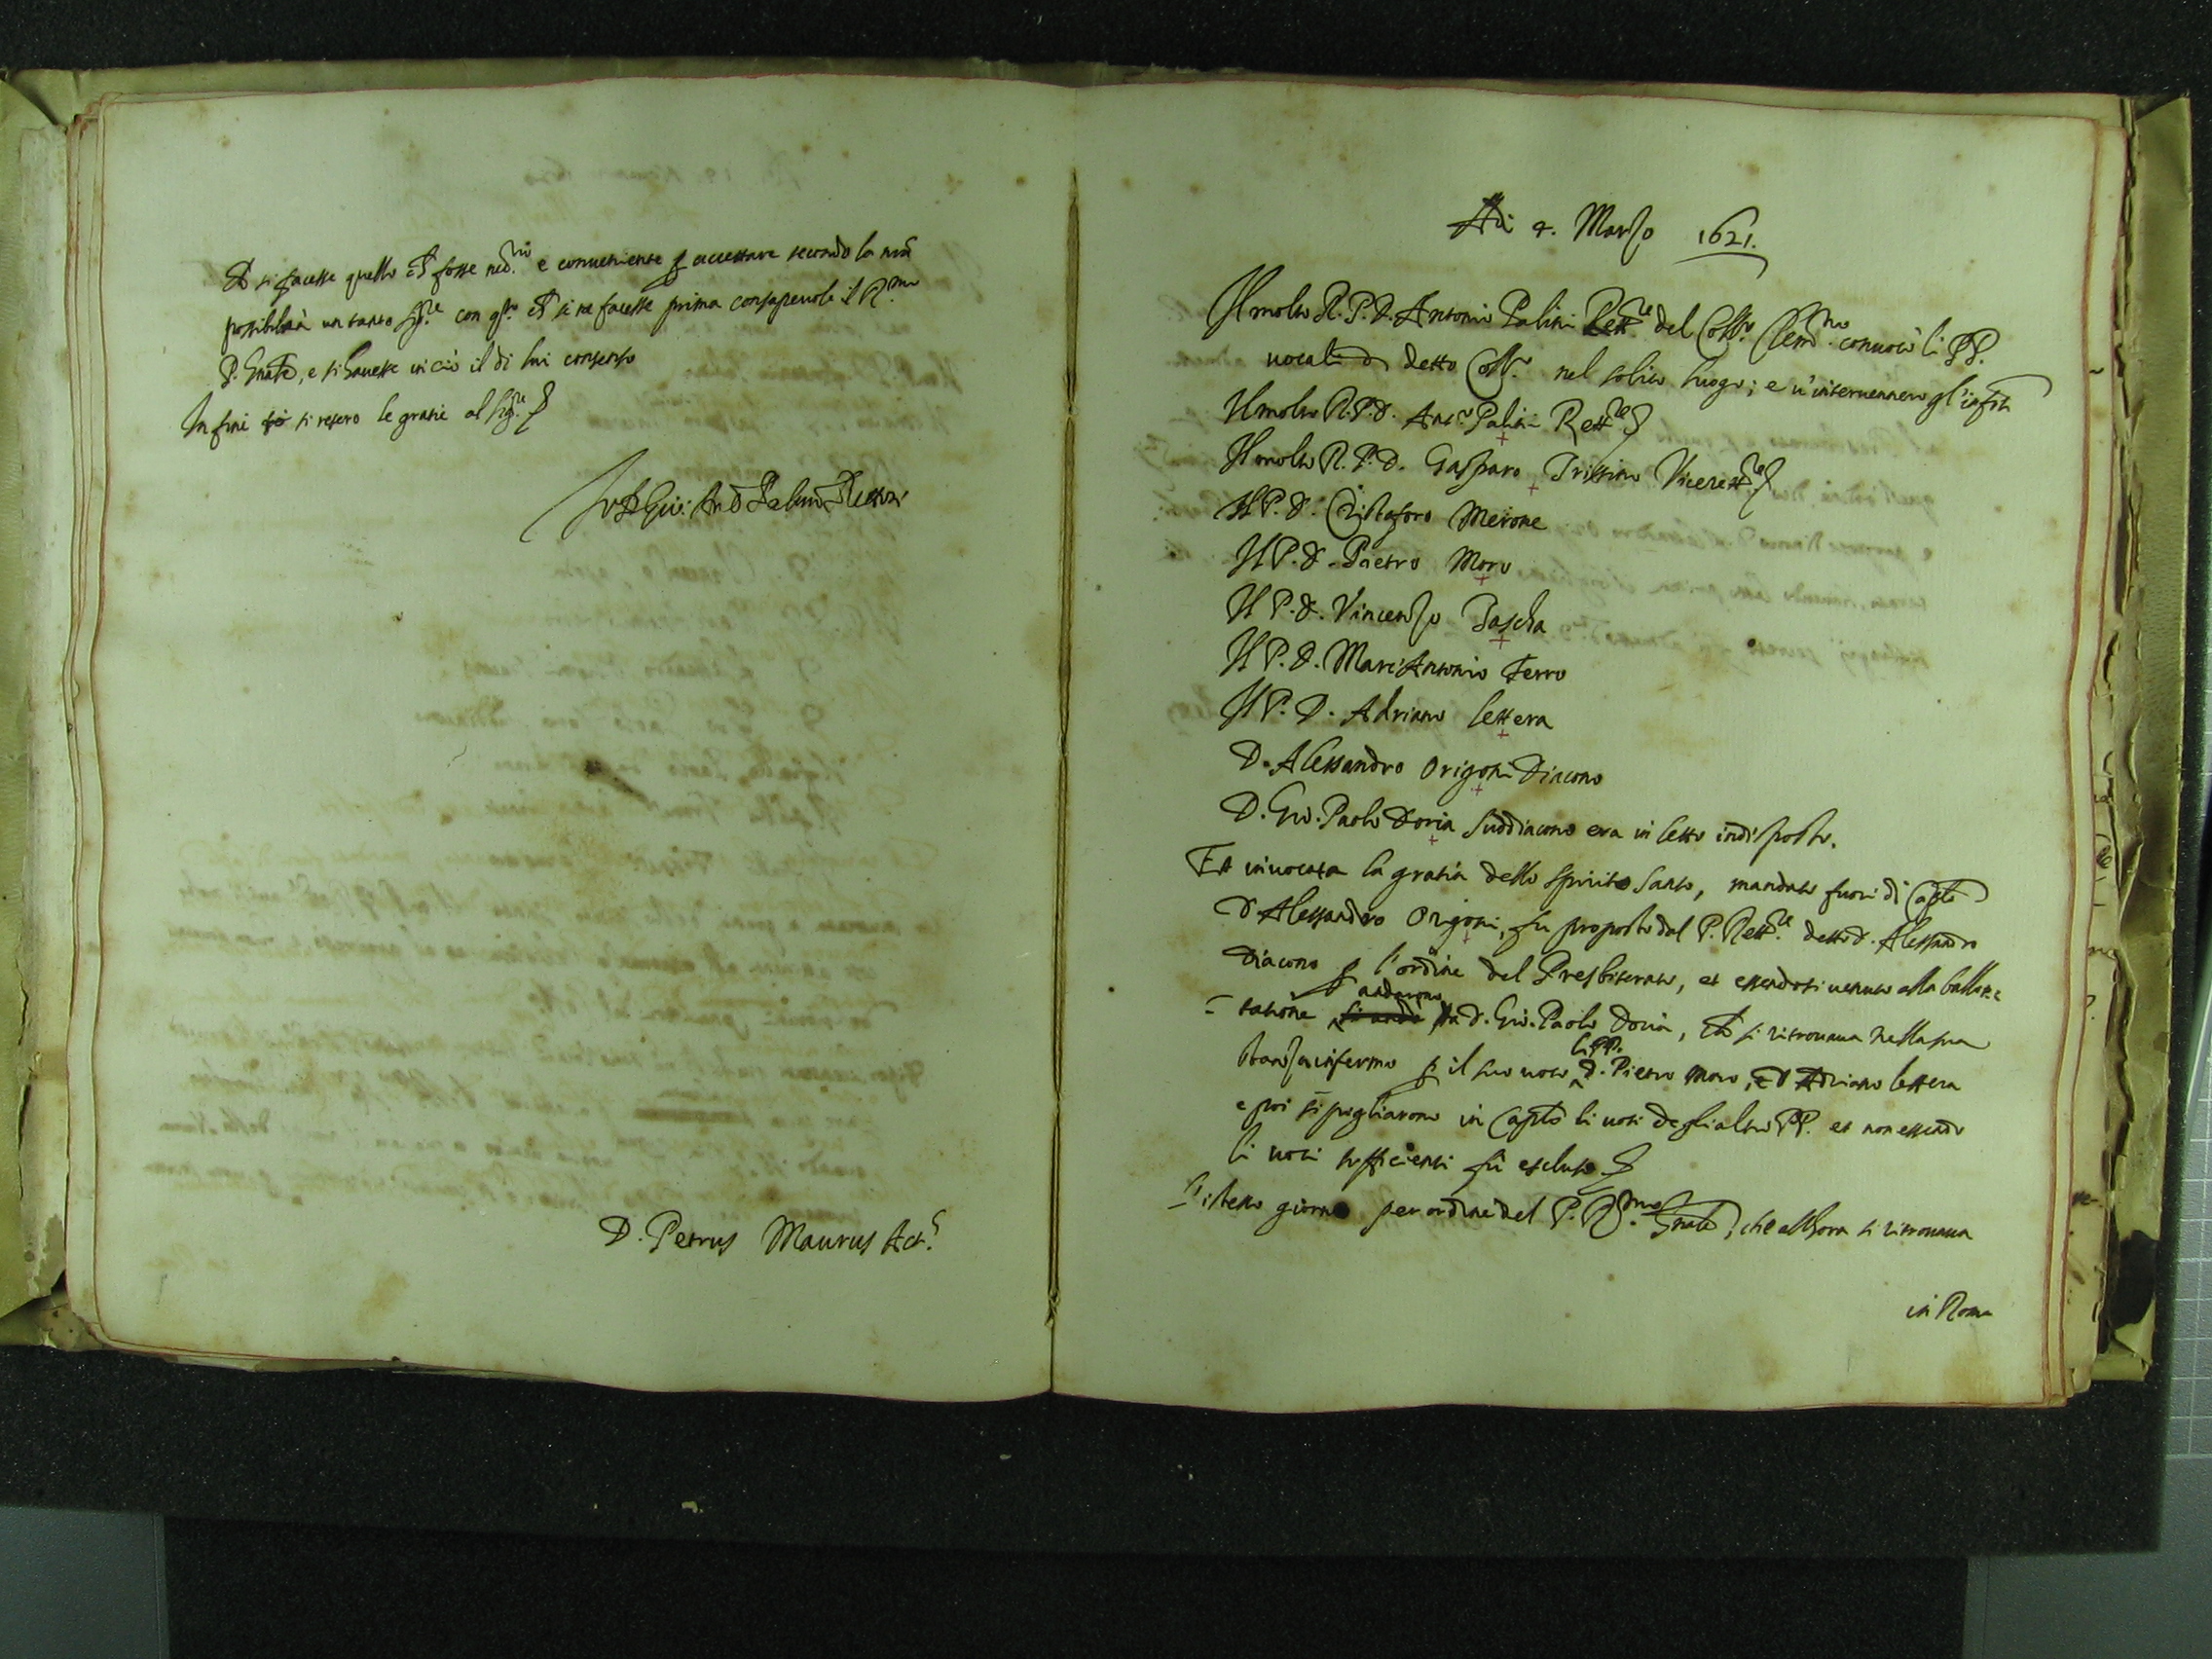 Et si facesse quello ch fosse nec.rio e conueniente p accettare secondo la nrã
possibiltà un tanto Sig.re con q.sto ch si ne facesse prima consapeuole il R.mo
P. Gnãle, e si hauesse in ciò il di lui consenso
In fine si resero le gratie al Sig.re
Rettor
D. Petrus Maurus Act.s
Adi 4. Marzo 1621.
Il molto R. P. D. Antonio Palini Rett.re del Coll.o Clem.no conuocò li PP.
uocali di detto Coll.o nel solito luogo; e u'interuennero gl'infrti
Il molto R. P. D. Ant.o Palini Rett.re
Il molto R. P. D. Gasparo Trissino Vicerett.re
Il P. D. Cristoforo Merone
Il P. D. Pietro Moro
Il P. D. Vincenzo Pascha
Il P. D. Marc'Antonio Ferro
Il P. D. Adriano Lettera
D. Alessandro Origoni Diacono
D. Gio. Paolo Doria Suddiacono era in letto indisposto.
Et inuocata la gratia dello Spirito Santo, mandato fuori di Caplo
D. Alessandro Origoni, fu proposto dal P. Rett.re detto D. Alessandro
Diacono p l'ordine del Presbiterato, et essendosi uenuto alla ballot=
=tatione andarono da D. Gio. Paolo Doria, ch si ritrouaua nella sua
stanza infermo p il suo uoto li PP. D. Pietro Moro, e D. Adriano Lettera
e poi si pigliarono in Caplo li uoti degli altri PP. et non essendo
li uoti sufficienti fù escluso
L'istesso giorno per ordine del P. R.mo Gnãle, che allhora si ritrouaua
in Roma